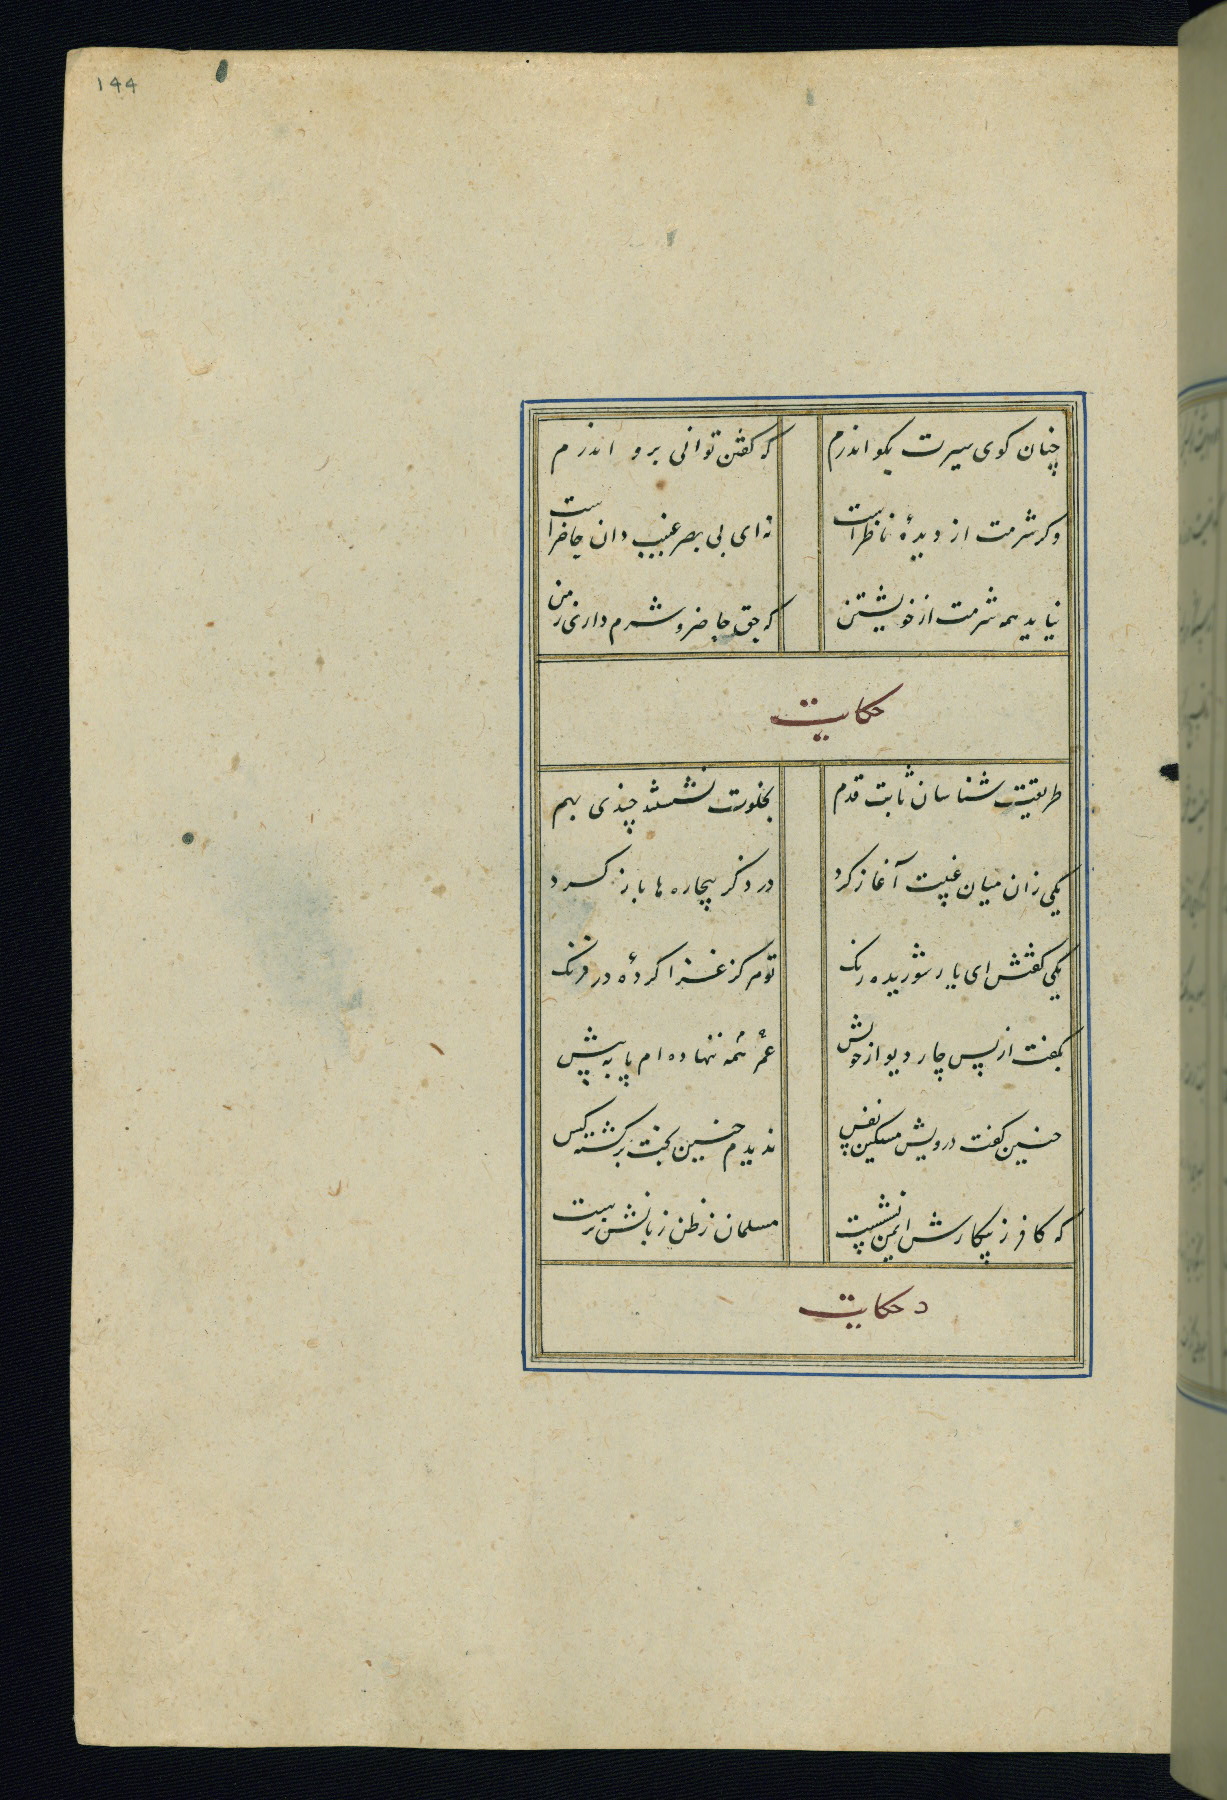 ۱۴۴
چنان کوی سیرت بکو اندرم که کفتن توانی برو اندرم
وکر شرمت از دیدهٔ ناظر است نه ای بی بصر غیب دان حاضر است
نیاید همه شرمت از خویشتن که حق حاضر و شرم داری ز من
حکایت
طریقت شناسان ثابت قدم بخلوت نشستند چندی بهم
یکی زان میان غیبت آغاز کرد در ذکر بیچاره ها باز کرد
یکی کفتش ای یار شوریده رنک تو هرکز غزا کردهٔ در فرنک
بکفت از پس چار دیوار خویش همه عمر ننهاده ام پا به پیش
چنین کفت درویش مسکین نفس ندیدم چنین بخت برکشته کس
که کافر ز پیکارش ایمن نشست مسلمان ز طن زبانش نرست
د حکایت